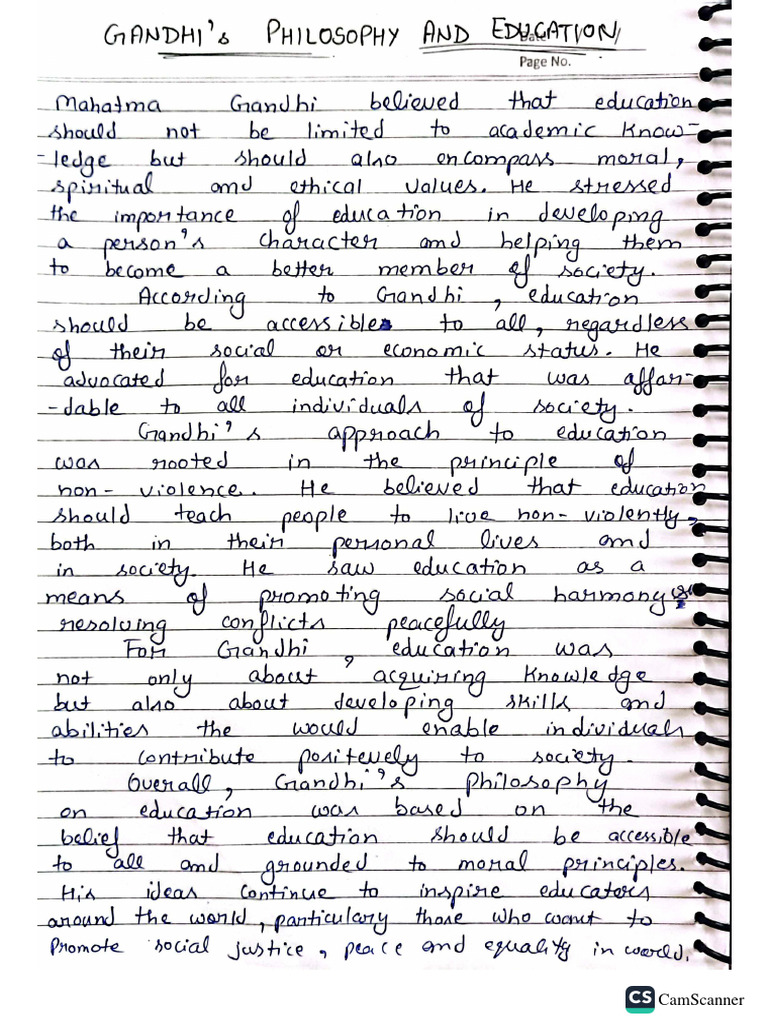 GANDHI's PHILOSOPHY AND EDUCATION
Page No.
Mahatma Gandhi believed that education
should not be limited to academic know-
-ledge but should also encompass moral,
spiritual and ethical values. He stressed
the importance of education in developing
a person's character and helping them
to become a better member of society.
According to Gandhi, education
should be accessible to all, regardless
of their social or economic status. He
advocated for education that was affar-
-dable to all individuals of society.
Gandhi's approach to education
was rooted in the principle of
non-violence. He believed that education
should teach people to live non-violently,
both in their personal lives and
in society. He saw education as a
means of promoting social harmony &
resolving conflicts peacefully
For Gandhi, education was
not only about acquiring knowledge
but also about developing skills and
abilities the would enable individuals
to contribute positevely to society.
Overall, Gandhi's philosophy
on education was based on the
belief that education should be accessible
to all and grounded to moral principles.
His ideas continue to inspire educators
around the world, particulary those who want to
Promote social justice, peace and equality in world.
CS CamScanner